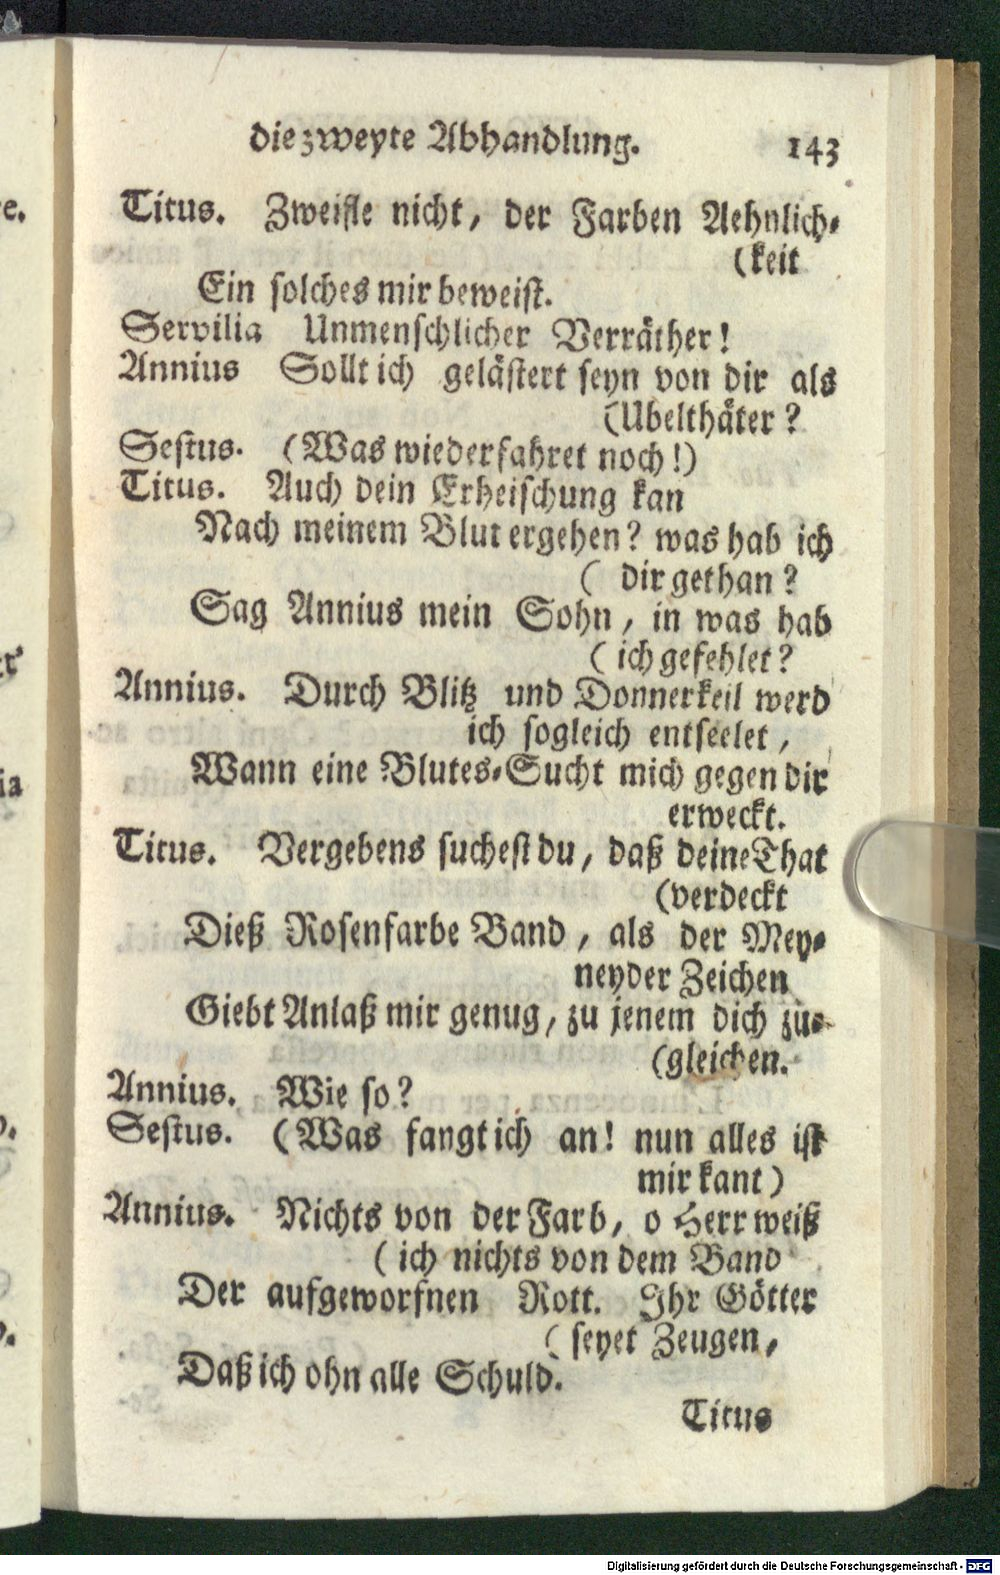 die zweyte Abhandlung. 143
Titus. Zweifle nicht, der Farben Aehnlich-
(keit
Ein solches mir beweist.
Servilia Unmenschlicher Verräther!
Annius Sollt ich gelästert seyn von dir als
(Ubelthäter?
Sestus. (Was wiederfahret noch!)
Titus. Auch dein Erheischung kan
Nach meinem Blut ergehen? was hab ich
( dir gethan?
Sag Annius mein Sohn, in was hab
( ich gefehlet?
Annius. Durch Blitz und Donnerkeil werd
ich sogleich entseelet,
Wann eine Blutes-Sucht mich gegen dir
erweckt.
Titus. Vergebens suchest du, daß deine That
(verdeckt
Dieß Rosenfarbe Band, als der Mey-
neyder Zeichen
Giebt Anlaß mir genug, zu jenem dich zu-
(gleichen.
Annius. Wie so?
Sestus. (Was fangt ich an! nun alles ist
mir kant)
Annius. Nichts von der Farb, o Herr weiß
( ich nichts von dem Band
Der aufgeworfnen Rott. Ihr Götter
( seyet Zeugen,
Daß ich ohn alle Schuld.
Titus
Digitalisierung gefördert durch die Deutsche Forschungsgemeinschaft - DFG